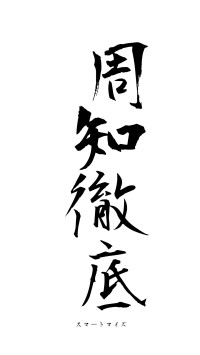 周知徹底
スマートマイズ